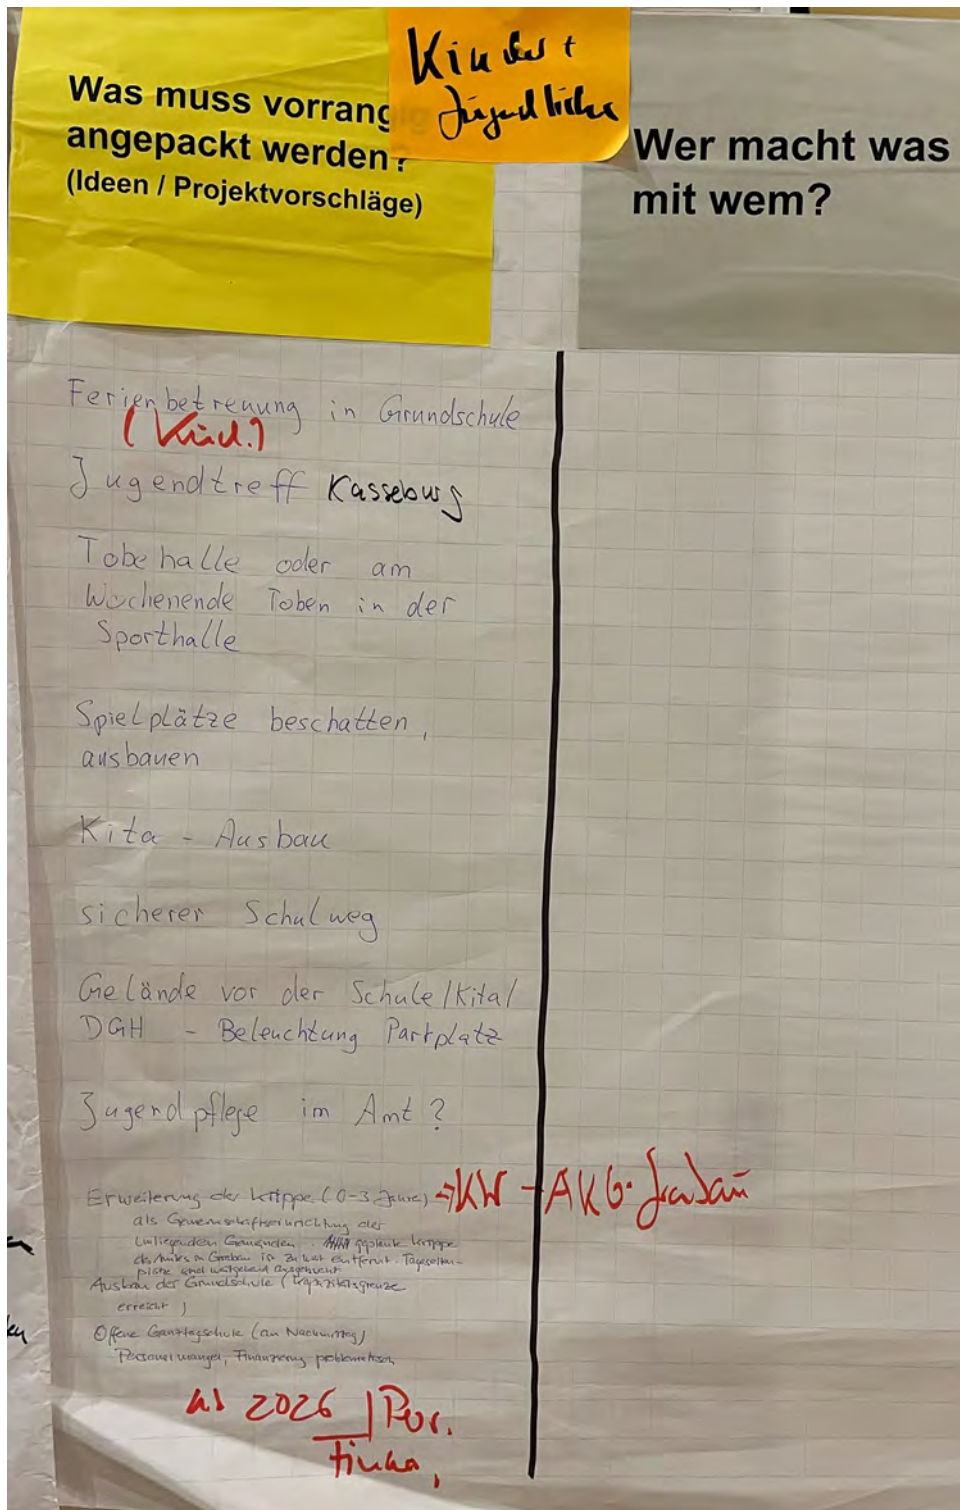 Kinder +
Jugendliche
Was muss vorrangig
angepackt werden?
(Ideen / Projektvorschläge)
Wer macht was
mit wem?
Ferienbetreuung in Grundschule
Jugendtreff Kasseburg
Tobehalle oder am
Wochenende Toben in der
Sporthalle
Spielplätze beschatten,
ausbauen
Kita - Ausbau
sicherer Schulweg
Gelände vor der Schule/Kita/
DGH - Beleuchtung Partplatz
Jugendpflege im Amt?
Erweiterung der Krippe (0-3 Jahre) → KW - AKG
als Gemeinschaftseinrichtung der
umliegenden Gemeinden. geplante Krippe
des Amtes in ist zu weit entfernt. Tageseltern-
plätze sind weitgehend ausgebucht
Ausbau der Grundschule (Kapazitätsgrenze
erreicht)
Offene Ganztagschule (am Nachmittag)
Personalmangel, Finanzierung problematisch
2026 Per.